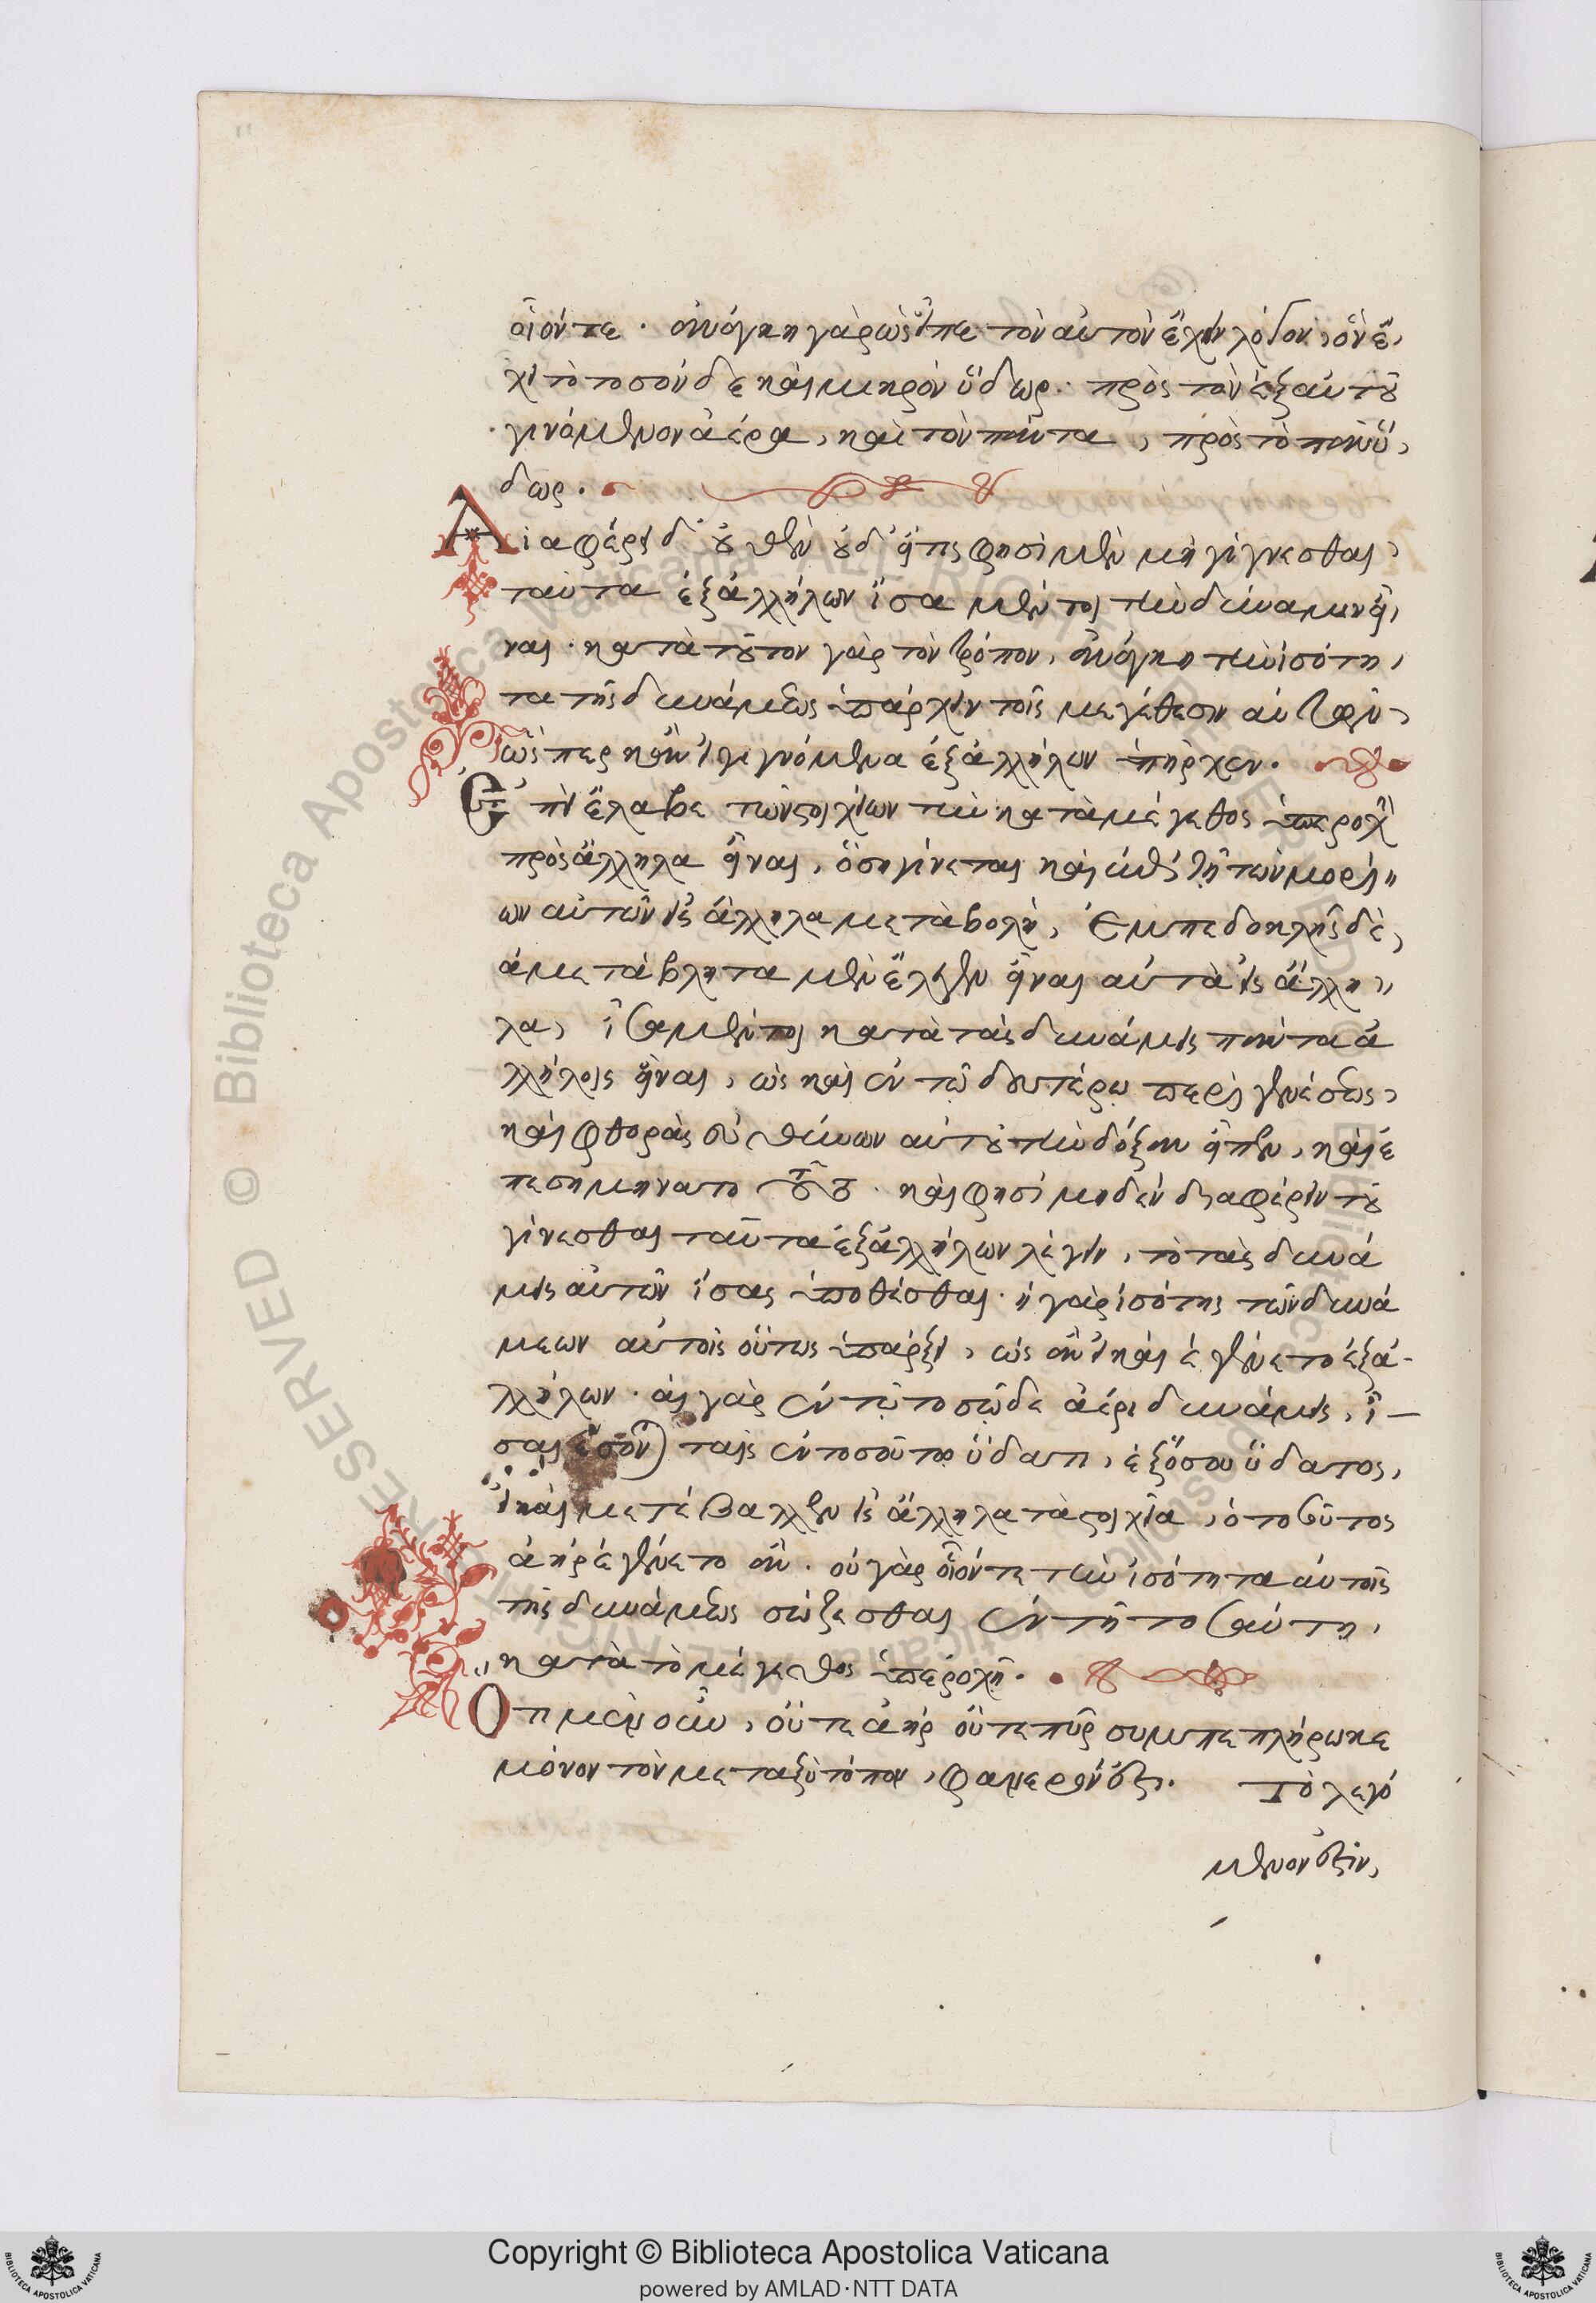 οἷόν τε. ἀνάγκη γὰρ ὡς εἶπε τὸν αὐτὸν ἔχειν λόγον, ὃν ἔ,
χει τὸ τοσόνδε καὶ μικρὸν ὕδωρ. πρὸς τὸν ἐξ αὐτοῦ
γινόμενον ἀέρα, καὶ τὸν πάντα, πρὸς τὸ πᾶν ὕ,
δωρ.
Διαφέρει δ' οὐθὲν οὐδ' εἴ τις φησὶ μὲν μὴ γίγνεσθαι,
ταῦτα ἐξ ἀλλήλων ἴσα μέντοι τὴν δύναμιν εἶ,
ναι. κατὰ τοῦτον γὰρ τὸν τρόπον, ἀνάγκη τὴν ἰσότη,
τα τῆς δυνάμεως ὑπάρχειν τοῖς μεγέθεσιν αὐτῶν,
ὥσπερ κἂν εἰ γιγνόμενα ἐξ ἀλλήλων ὑπῆρχεν.
Ἐπεὶ ἔλαβε τῶν στοιχείων τὴν κατὰ μέγεθος ὑπεροχὴ
πρὸς ἄλληλα εἶναι, ὅση γίνεται καὶ ἐν τῇ τῶν μορί"
ων αὐτῶν εἰς ἄλληλα μεταβολῇ, Ἐμπεδοκλῆς δὲ,
ἀμετάβλητα μὲν ἔλεγεν εἶναι αὐτὰ εἰς ἄλλη"
λα, ἴσα μέντοι κατὰ τὰς δυνάμεις πάντα ἀ
λλήλοις εἶναι, ὡς καὶ ἐν τῷ δευτέρῳ περὶ γενέσεως,
καὶ φθορᾶς εὐθύνων αὐτοῦ τὴν δόξαν εἶπεν, καὶ ἐ
πεσημήνατο τοῦτο. καὶ φησὶ μηδὲν διαφέρειν τοῦ
γίνεσθαι ταῦτα ἐξ ἀλλήλων λέγειν, τὸ τὰς δυνά
μεις αὐτῶν ἴσας ὑποθέσθαι. ἡ γὰρ ἰσότης τῶν δυνά
μεων αὐτοῖς οὕτως ὑπάρξει, ὡς ἂν εἰ καὶ ἐγένετο ἐξ ἀ-
λλήλων. αἱ γὰρ ἐν τῷ τοσῷδε ἀέρι δυνάμεις, ἴ-
σαι ἔσονται ταῖς ἐν τοσούτῳ ὕδατι, ἐξ ὅσου ὕδατος,
εἰ καὶ μετέβαλλεν εἰς ἄλληλα τὰ στοιχεῖα, ὁ τοσοῦτος
ἀὴρ ἐγένετο ἄν. οὐ γὰρ οἷόν τε τὴν ἰσότητα αὐτοῖς
τῆς δυνάμεως σώζεσθαι ἐν τῇ τοσαύτῃ,
κατὰ τὸ μέγεθος ὑπεροχῇ.
Ὅτι μὲν οὖν, οὔτε ἀὴρ οὔτε πῦρ συμπεπλήρωκε
μόνον τὸν μεταξὺ τόπον, φανερόν ἐστι. Τὸ λεγό
μενον ἐστὶν,